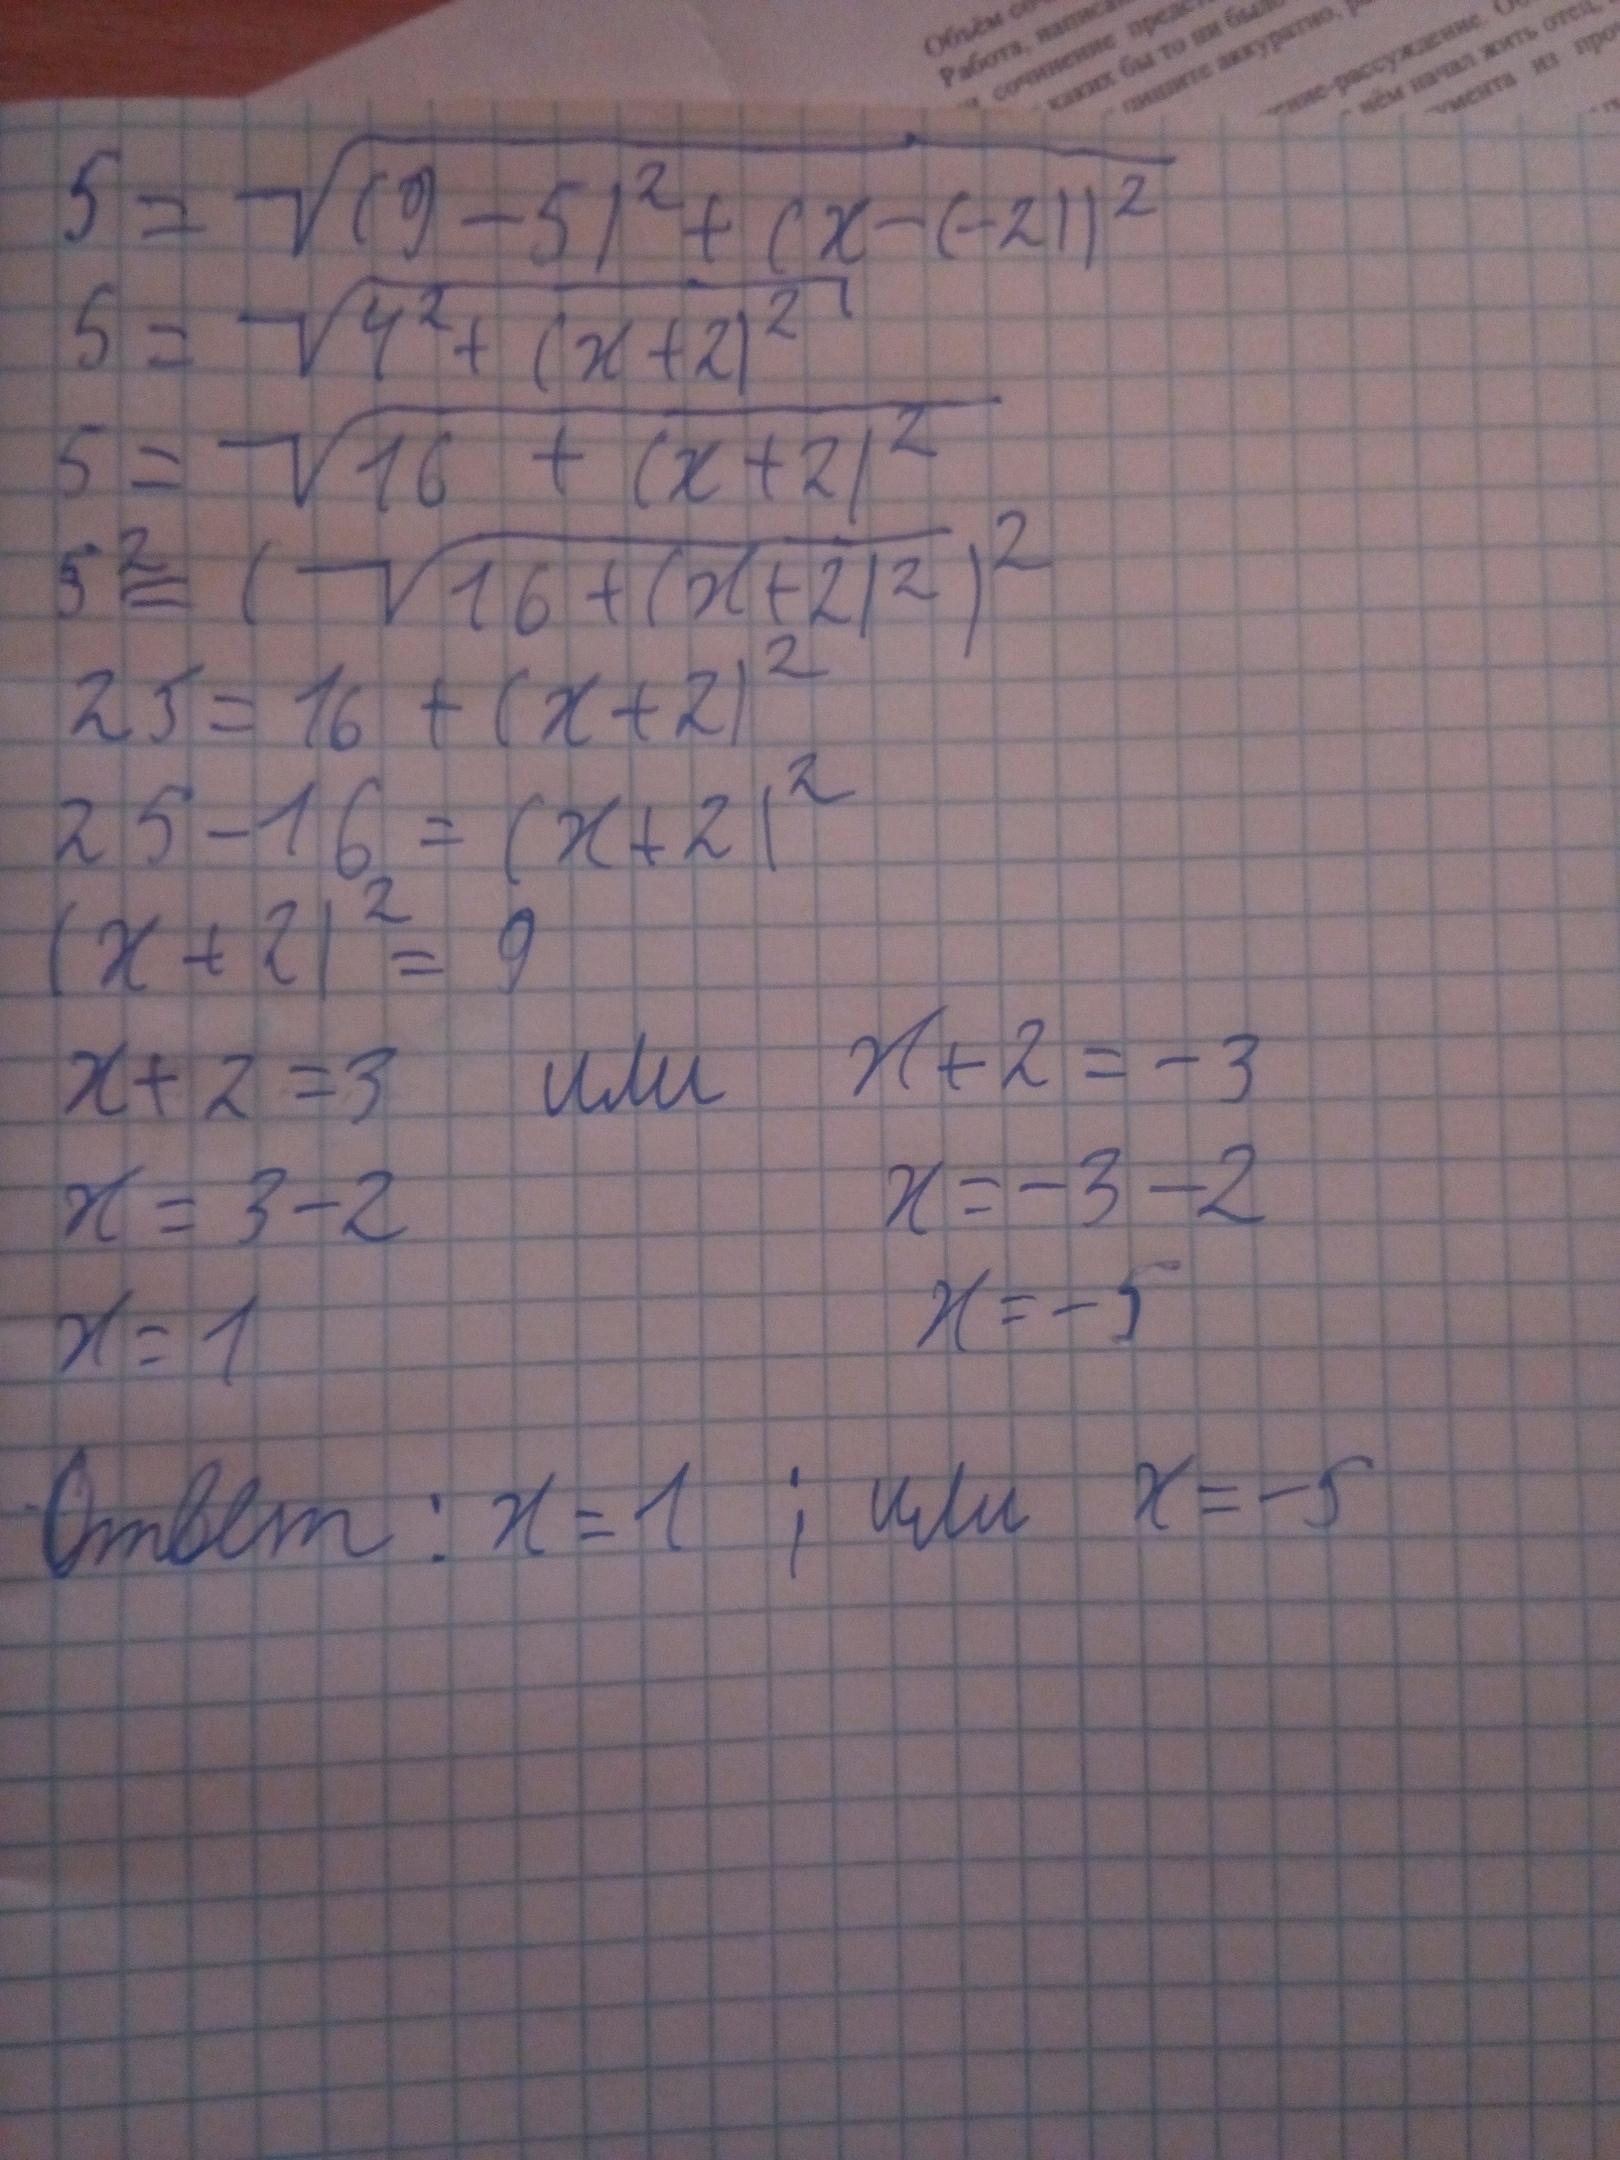 Объём соч
Работа, написан
сочинение предст
каких бы то ни было
пишите аккуратно, р
ние-рассуждение. Об
нём начал жить отец,
умента из про
5 = √((9 - 5)² + (x - (-2))²
5 = √(4² + (x + 2)²
5 = √(16 + (x + 2)²
5² = (√(16 + (x + 2)²)²
25 = 16 + (x + 2)²
25 - 16 = (x + 2)²
(x + 2)² = 9
x + 2 = 3 или x + 2 = -3
x = 3 - 2 x = -3 - 2
x = 1 x = -5
Ответ: x = 1 ; или x = -5